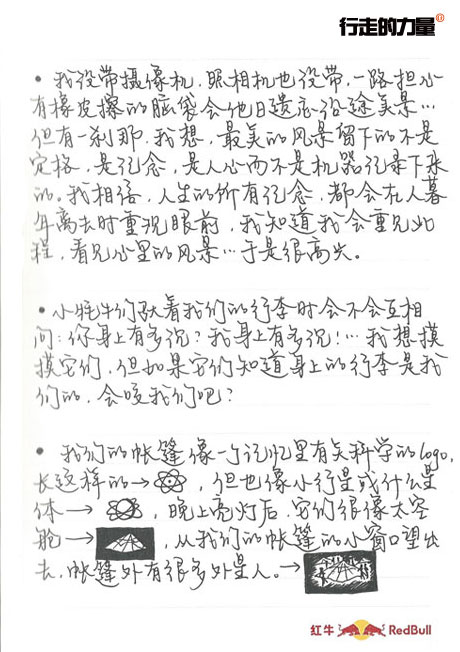 行走的力量
• 我没带摄像机，照相机也没带，一路担心
有橡皮擦的脑袋会他日遗忘沿途美景…
但有一刹那，我想，最美的风景留下的不是
定格，是记念，是人心而不是机器记录下来
的。我相信，人生的所有记念，都会在人暮
年离去时重现眼前，我知道我会重见此
程，看见心里的风景…于是很高兴。
• 小牦牛们驮着我们的行李时会不会互相
问：你身上有多沉？我身上有多沉！…我想摸
摸它们，但如果它们知道身上的行李是我
们的，会咬我们吧？
• 我们的帐篷像一个记忆里有关科学的logo,
长这样的→ ，但也像小行星或什么星
体→ ，晚上亮灯后，它们很像太空
舱→ ，从我们的帐篷的小窗口望出
去，帐篷外有很多外星人。→
红牛 RedBull